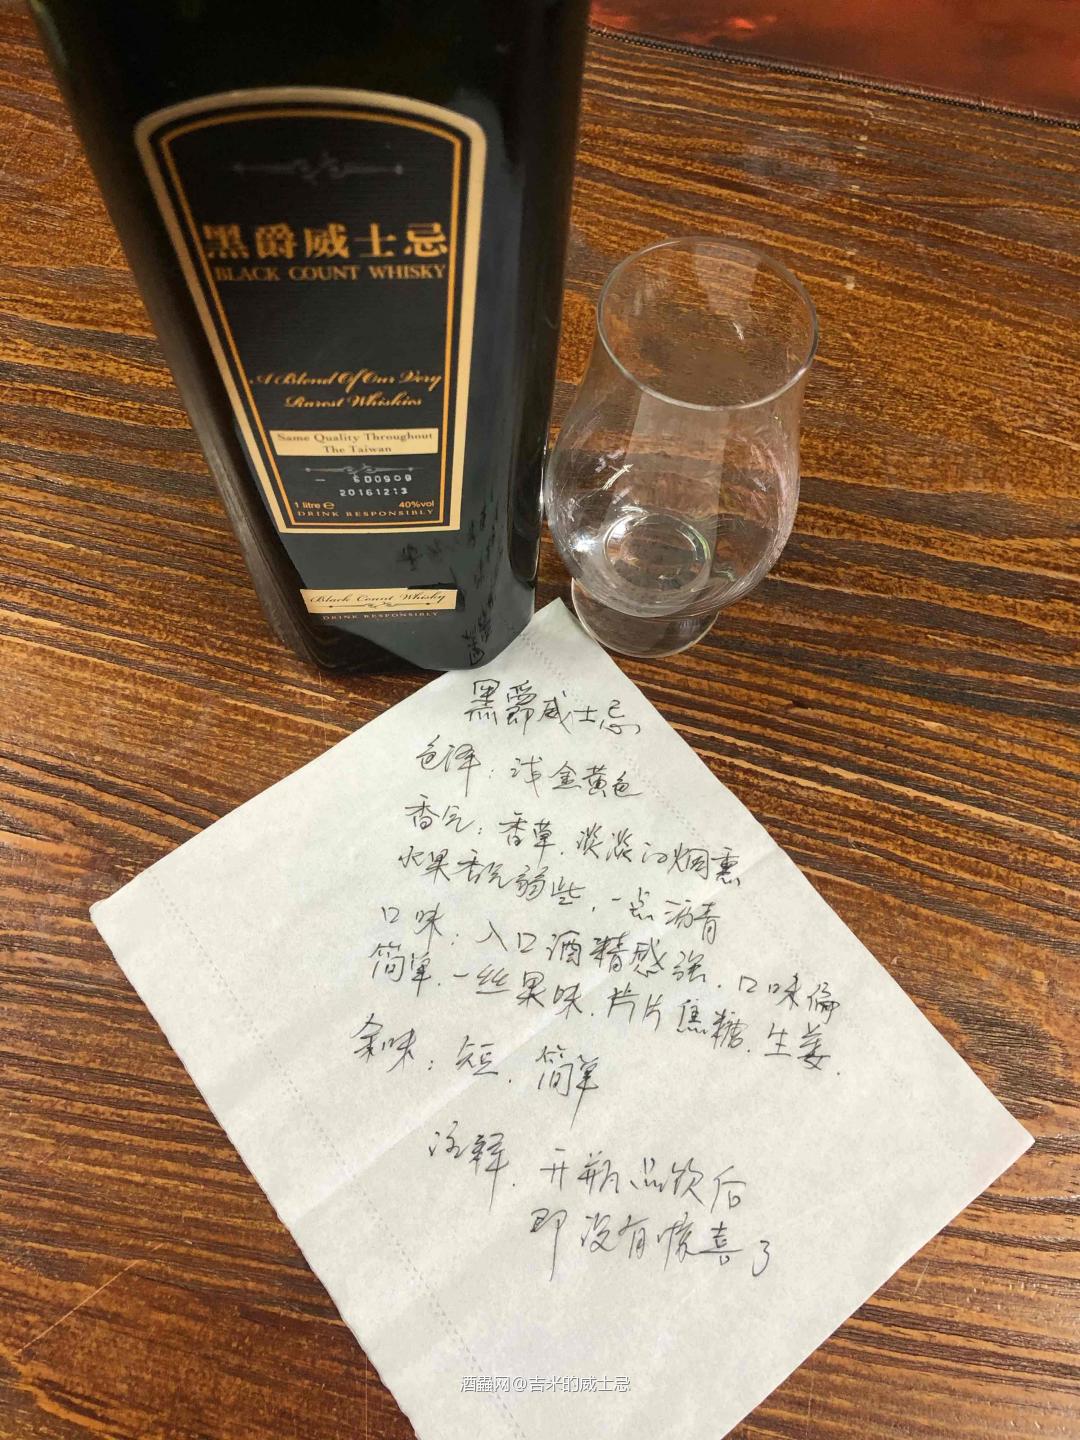 黑爵威士忌
BLACK COUNT WHISKY
A Blend Of Our Very
Rarest Whiskies
Same Quality Throughout
The Taiwan
600909
20161213
1 litre ℮ 40%vol
DRINK RESPONSIBLY
Black Count Whisky
DRINK RESPONSIBLY
黑爵威士忌
色泽：浅金黄色
香气：香草．淡淡的烟熏
水果香气弱些，一点沥青
口味：入口酒精感强．口味偏
简单．一丝果味．片片焦糖．生姜．
余味：短．简单
注释．开瓶品饮后
即没有惊喜了
酒蟲网@吉米的威士忌